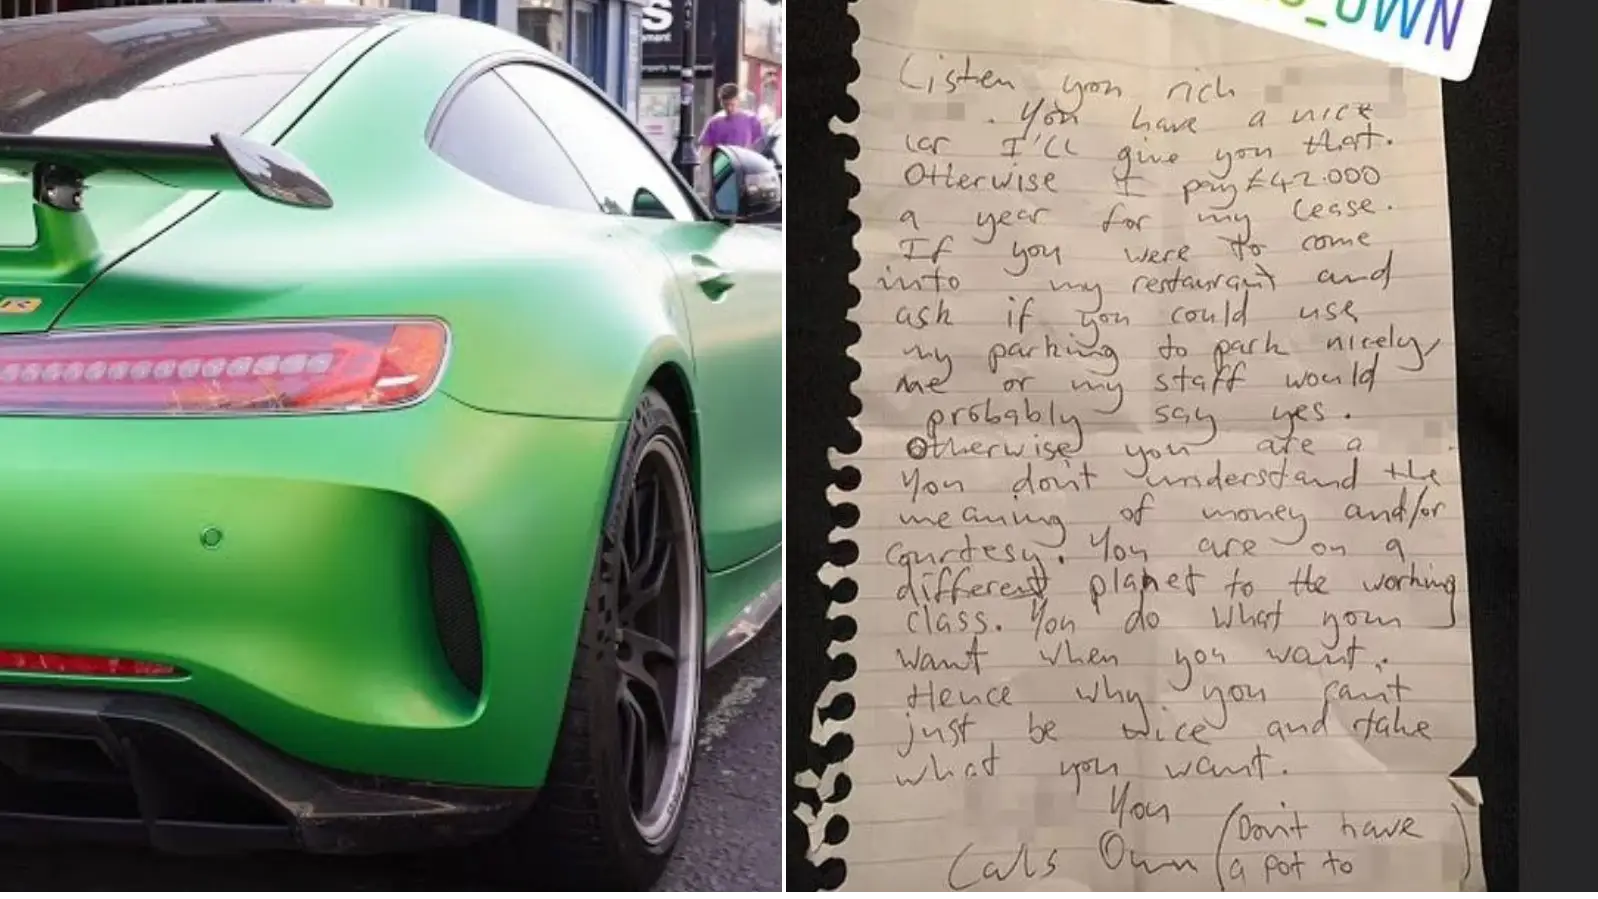 S
ment
R
_OWN
Listen you rich
. You have a nice
car I'll give you that.
Otherwise I pay £42.000
a year for my lease.
If you were to come
into my restaurant and
ask if you could use
my parking to park nicely,
me or my staff would
probably say yes.
Otherwise you are a
You don't understand the
meaning of money and/or
courtesy. You are on a
different planet to the working
class. You do what your
want when you want.
Hence why you can't
just be nice and take
what you want.
You
Cals Own (Don't have
a pot to